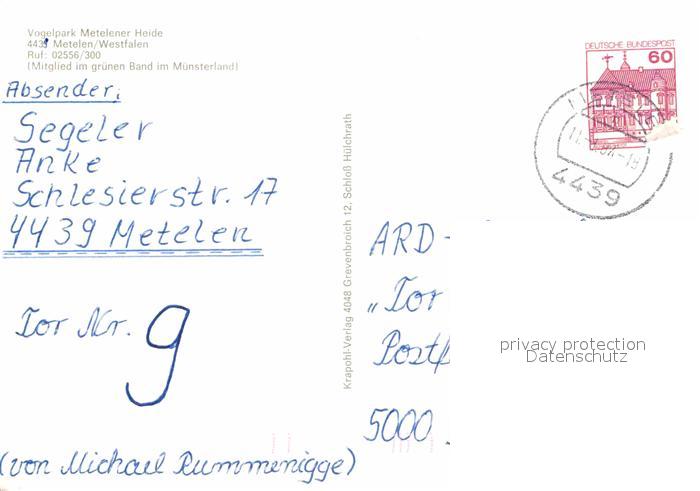 Vogelpark Metelener Heide
4439 Metelen/Westfalen
Ruf: 02556/300
(Mitglied im grünen Band im Münsterland)
Absender:
Segeler
Anke
Schlesierstr. 17
4439 Metelen
Tor Nr. 9
(von Michael Rummenigge)
Krapohl-Verlag 4048 Grevenbroich 12, Schloß Hülchrath
DEUTSCHE BUNDESPOST
60
4439
ARD -
„Tor
5000
privacy protection
Datenschutz